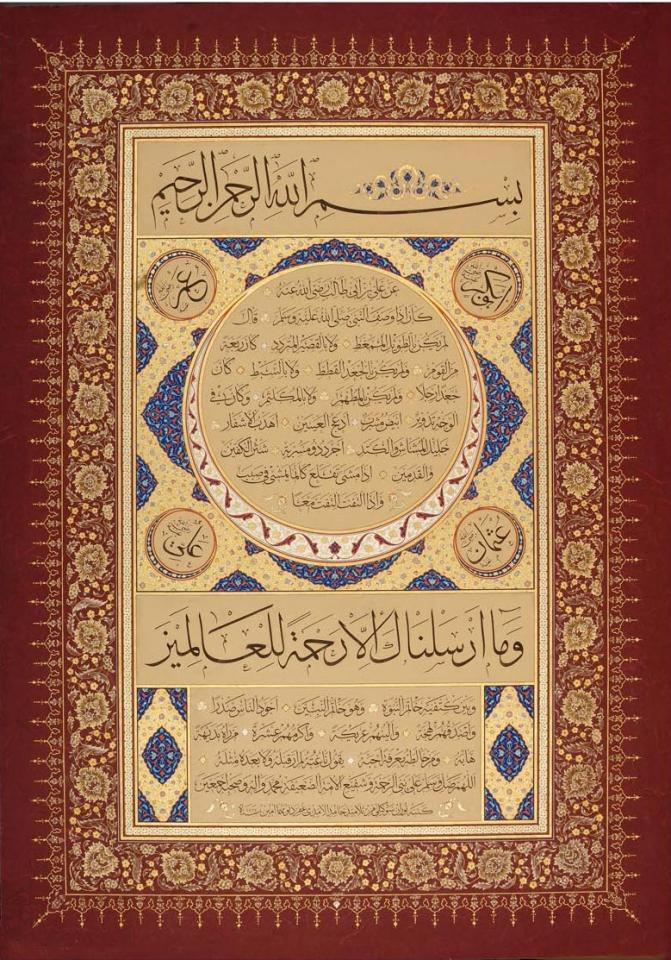 بسم الله الرحمن الرحيم
ابوبكر
عمر
عن علي بن ابي طالب رضي الله عنه
كان اذا وصف النبي صلى الله عليه وسلم قال
لم يكن بالطويل الممغط ولا بالقصير المتردد كان ربعة
من القوم ولم يكن بالجعد القطط ولا بالسبط كان
جعدا رجلا ولم يكن بالمطهم ولا بالمكلثم وكان في
الوجه تدوير ابيض مشرب ادعج العينين اهدب الاشفار
جليل المشاش والكتد اجرد ذو مسربة شثن الكفين
والقدمين اذا مشى تقلع كانما يمشي في صبب
واذا التفت التفت معا
عثمان
علي
وما ارسلناك الا رحمة للعالمين
وبين كتفيه خاتم النبوة وهو خاتم النبيين اجود الناس صدرا
واصدقهم لهجة والينهم عريكة واكرمهم عشرة من راه بديهة
هابه ومن خالطه معرفة احبه يقول ناعته لم ار قبله ولا بعده مثله
اللهم صل وسلم على نبي الرحمة وشفيع الامة محمد واله وصحبه اجمعين